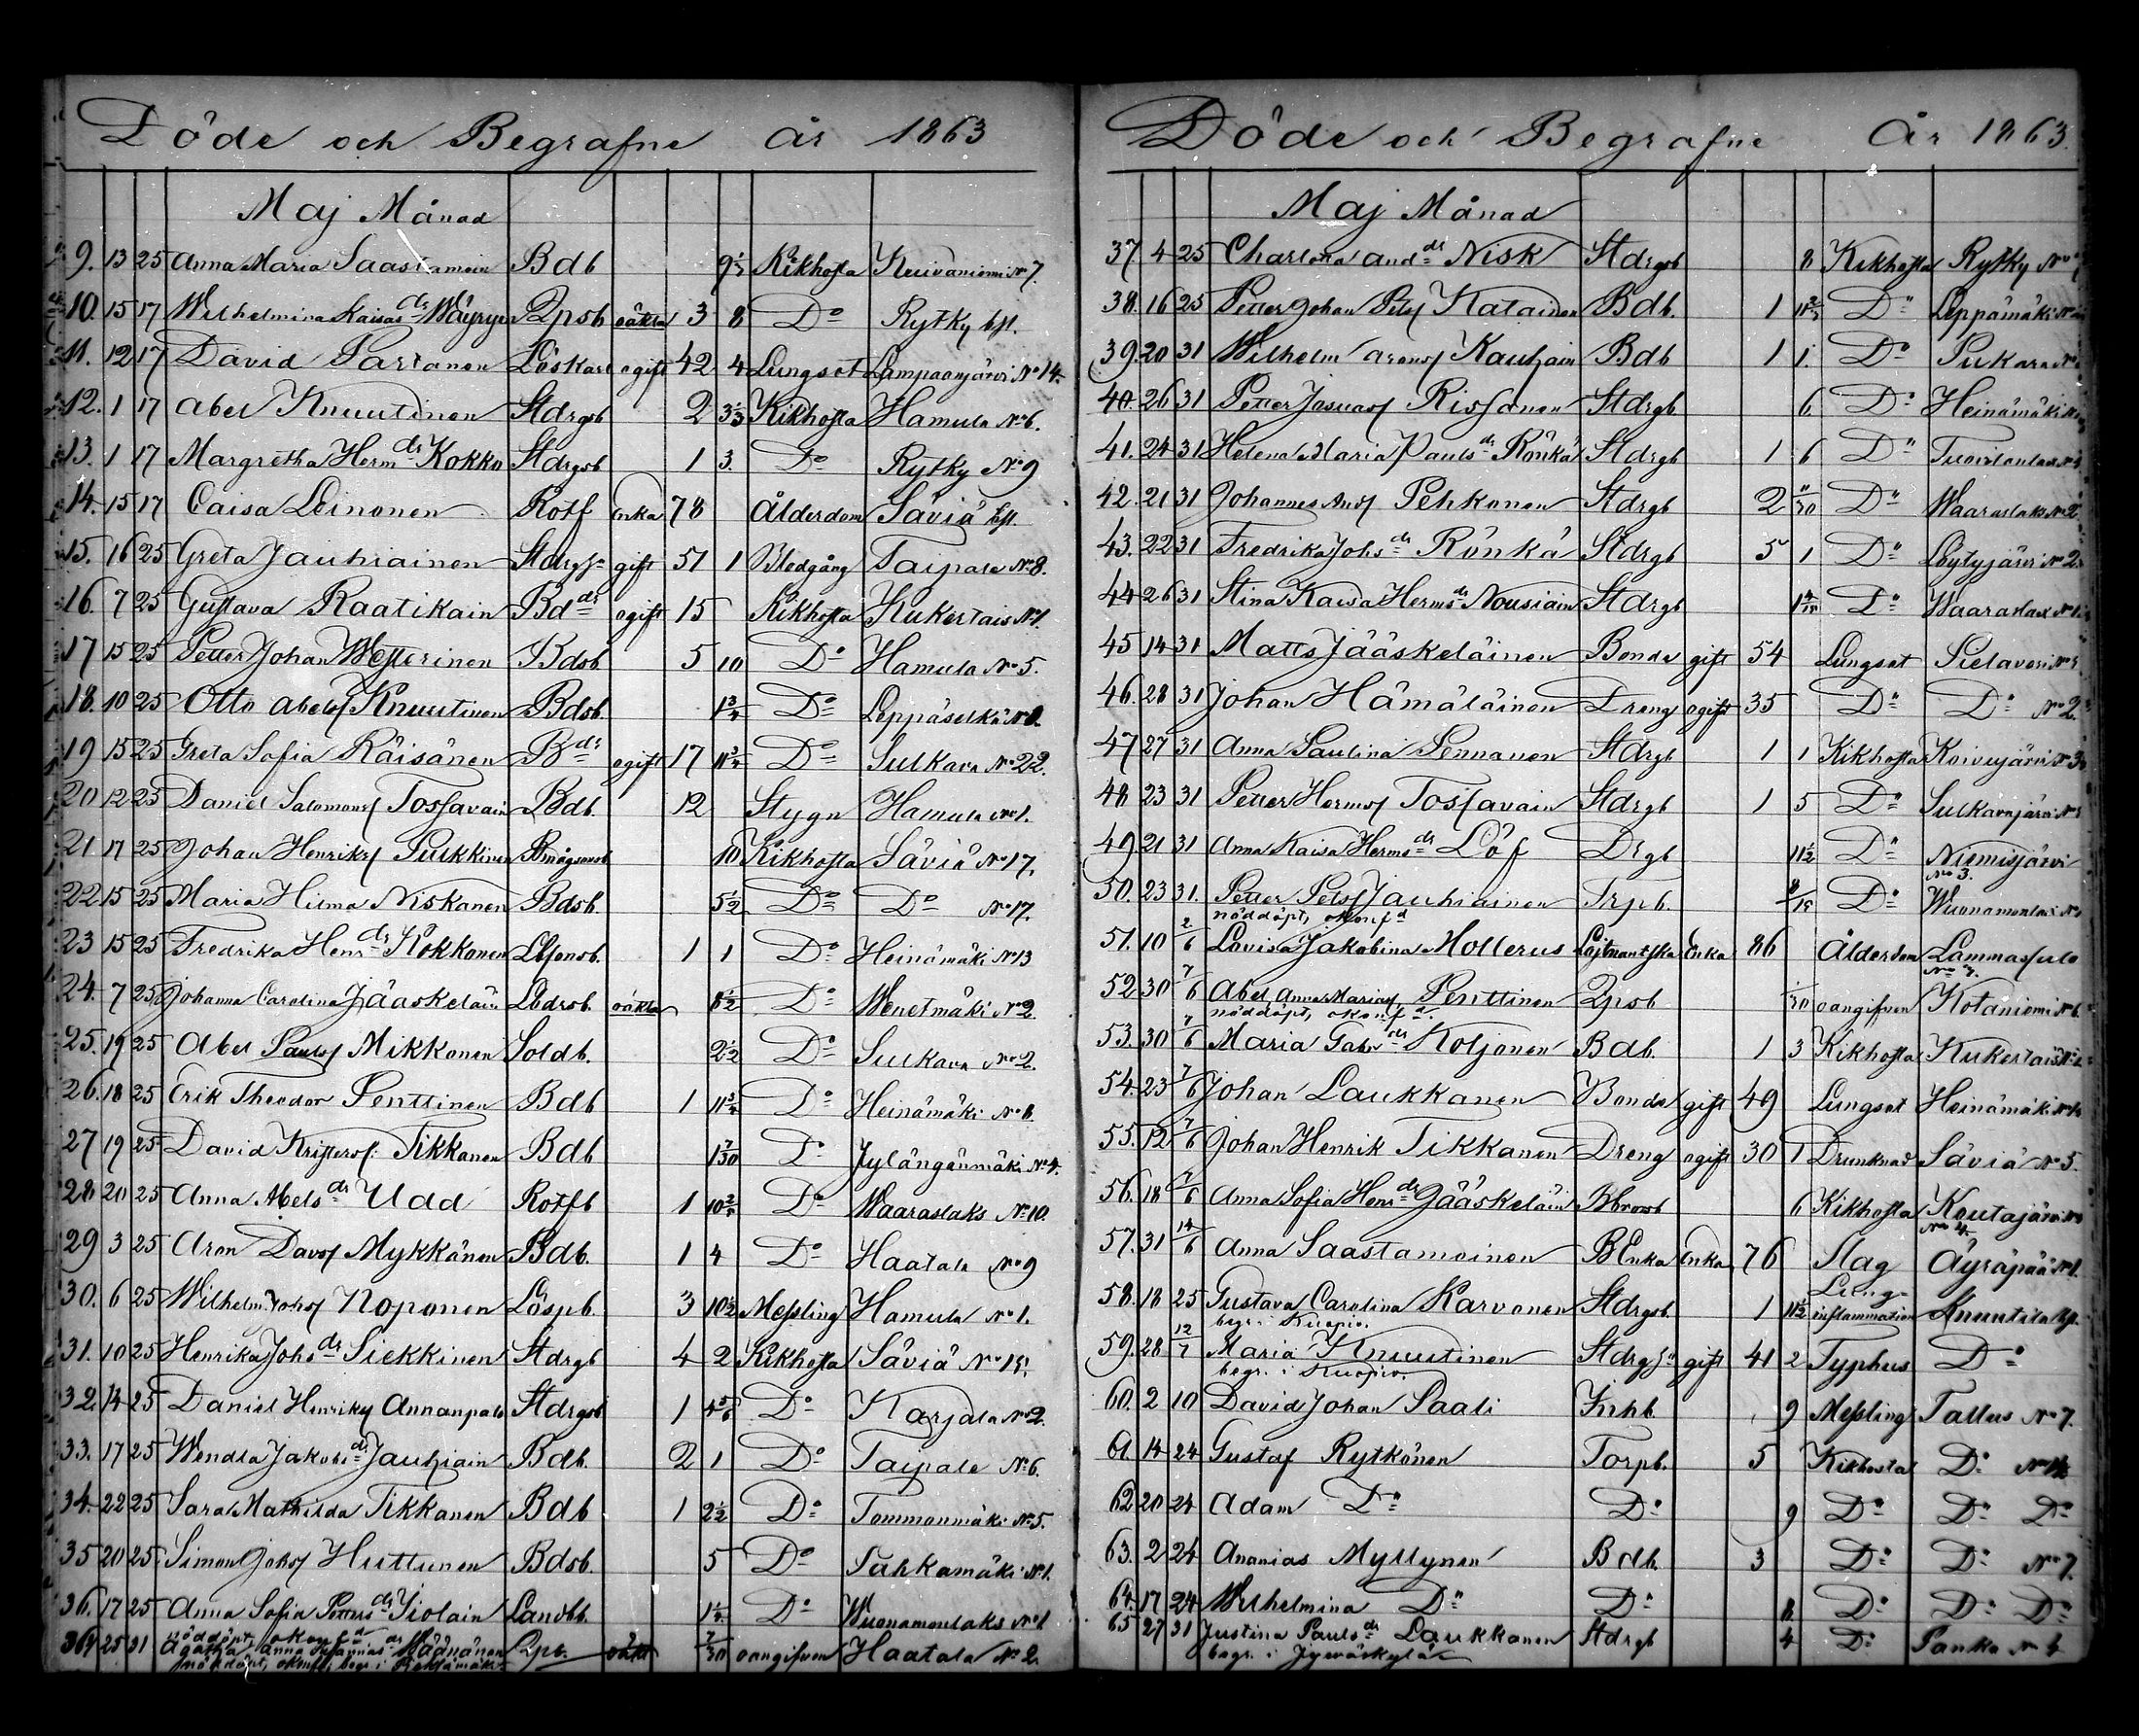 Döde och Begrafne år 1863
Maj Månad
9. 13 25 Anna Maria Saastamoin Bdb 9 1/3 Kikhosta Kuivaniemi No 7.
10. 15 17 Wilhelmina Kaisas dr Wäyryn Qpsb oäkta 3 8 Do Rytky bst.
11. 12 17 David Partanen Löskarl ogift 42 4 Lungsot Lampaanjärvi No 14.
12. 1 17 Abel Knuutinen Stdrgsb 2 3 1/3 Kikhosta Hamula No 6.
13. 1 17 Margretha Herm dr Kokko Stdrgsb 1 3. Do Rytky No 9
14. 15 17 Caisa Leinonen Rotf Enka 78 Ålderdom Säviä bst.
15. 16 25 Greta Jauhiainen Stdrgh gift 51 1 Blodgång Taipale No 8.
16. 7 25 Gustava Raatikain Bd dr ogift 15 Kikhosta Kukertais No 1.
17 15 25 Petter Johan Westerinen Bdsb 5 10 Do Hamula No 5.
18. 10 25 Otto Abelsf Knuutinen Bdsb. 1 3/4 Do Leppäselkä No 8.
19 15 25 Greta Sofia Räisänen B dr ogift 17 11 3/4 Do Sulkava No 22.
20 12 25 Daniel Salomonsf Tossavain Bdb. 12 Stygn Hamula No 1.
21. 17 25 Johan Henriksf Pukkinen 10 Kikhosta Säviä No 17.
22 15 25 Maria Hilma Niskanen Bdsb. 5 1/2 Do Do No 17.
23 15 25 Fredrika Henr dr Kokkonen 1 1 Do Heinämäki No 13
24. 7 25 Johanna Carolina Jääskeläin Lbdrsb. oäkta 8 1/2 Do Wenetmäki No 2.
25. 19 25 Abel Paulsf Mikkonen Soldb. 2 1/2 Do Sulkava No 2.
26. 18 25 Erik Theodor Penttinen Bdb 1 11 3/4 Do Heinämäki No 8.
27 19 25 David Kristersf. Tikkanen Bdb 1 7/30 Do Jylängänmäki No 4.
28 20 25 Anna Abels dr Udd Rotfb 1 10 2/3 Do Waaraslaks No 10.
29 3 25 Aron Davsf Mykkänen Bdb. 1 4 Do Haatala No 9
30. 6 25 Wilhelm Johsf Noponen Löspb. 3 10 1/2 Messling Hamula No 1.
31. 10 25 Henrika Johs dr Siekkinen Stdrgb 4 2 Kikhosta Säviä No 15.
32. 14 25 Daniel Henriksf Annanpalo Stdrgsb 1 4 5/6 Do Karjala No 2.
33. 17 25 Wendla Jakobs dr Jauhiain Bdb. 2 1 Do Taipale No 6.
34. 22 25 Sara Mathilda Tikkanen Bdb 1 2 1/2 Do Tommonmäki No 5.
35 20 25 Simon Johsf Huttunen Bdsb. 5 Do Sahkamäki No 1.
36. 17 25 Anna Sofia Petters dr Landbb. 1 1/4 Do Wuonamonlaks No 1
nöddöpt, okonfd
36½ 25 31 Agatha Anna Qpb. oäkta 7/30 oangifven Haatala No 2
nöddöpt, okonf. begr. i
Döde och Begrafne År 1863.
Maj Månad
37 4 25 Charlotta And dr Nisk Stdrgsb 8 Kikhosta Rytky No
38. 16 25 Petter Johan Petsf Katainen Bdb. 1 11 2/3 Do Leppämäki No
39. 20 31 Wilhelm Aronsf Kauhain Bdb 1 1. Do
40. 26 31 Petter Josuasf Rissanen Stdrgb 6 Do Heinämäki No
41. 24 31 Helena Maria Pauls dr Rönkä Stdrgb 1 6 Do
42. 21 31 Johannes Andsf Pehkonen Stdrgb 2 11/30 Do Waaraslaks No 2
43. 22 31 Fredrika Johs dr Rönkä Stdrgb 5 1 Do Löytyjärvi No 2.
44 26 31 Stina Kaisa Herms dr Nousiain Stdrgb Do Waaraslax No 1.
45 14 31 Matts Jääskeläinen Bonde gift 54 Lungsot Pielavesi No
46. 28 31 Johan Hämäläinen Dreng ogift 35 Do Do No 2.
47 27 31 Anna Paulina Pennanen Stdrgb 1 1 Kikhosta Koivujärvi No 3
48 23 31 Petter Hermsf Tossavain Stdrgb 1 5 Do Sulkavajärvi No
49. 21 31 Anna Kaisa Herms dr Löf Drgb 11 1/2 Do Niemisjärvi
No 3.
50. 23 31. Petter Petsf Jauhiainen Trpb. 8/15 Do Wuonamonlax No
nöddöpt, okonfd
51. 10 2/6 Lovisa Jakobina Mollerus Löjtnantska Enka 86 Ålderdom Lammassalo
No 3.
52 30 7/6 Abel Anna Mariasf Penttinen Qpsb 1/30 oangifven Kotaniemi No 6.
nöddöpt, okonfd.
53. 30 7/6 Maria Gabr dr Koljonen Bdb. 1 3 Kikhosta Kukertais No
54. 23 7/6 Johan Laukkanen Bonde gift 49 Lungsot Heinämäki No
55. 12 7/6 Johan Henrik Tikkanen Dreng ogift 30 1 Drunknad Säviä No 5.
56. 18 7/6 Anna Sofia Henr dr Jääskeläin 6 Kikhosta Koutajärvi
No 4.
57. 31 14/6 Anna Saastamoinen B Enka Enka 76 Slag Äyräpää No 1.
58. 18 25 Gustava Carolina Karvonen Stdrgsb. 1 11 1/2 Lung-inflammation Knuutila bst.
begr. i Kuopio.
59. 28 12/7 Maria Knuutinen Stdrgh gift 41 2 Typhus Do
begr. i Kuopio.
60. 2 10 David Johan Saali Inhb. 9 Messling Tallus No 7.
61. 14 24 Gustaf Rytkönen Torpb. 5 Kikhosta Do No 14
62 20 24 Adam Do Do 9 Do Do Do
63. 2 24 Ananias Myllynen Bdb. 3 Do Do No 7.
64. 17 24 Wilhelmina Do Do 8 Do Do Do
65 27 31 Justina Pauls dr Laukkanen Stdrgb 4 Do Panka No 4
begr. i Jyväskylä